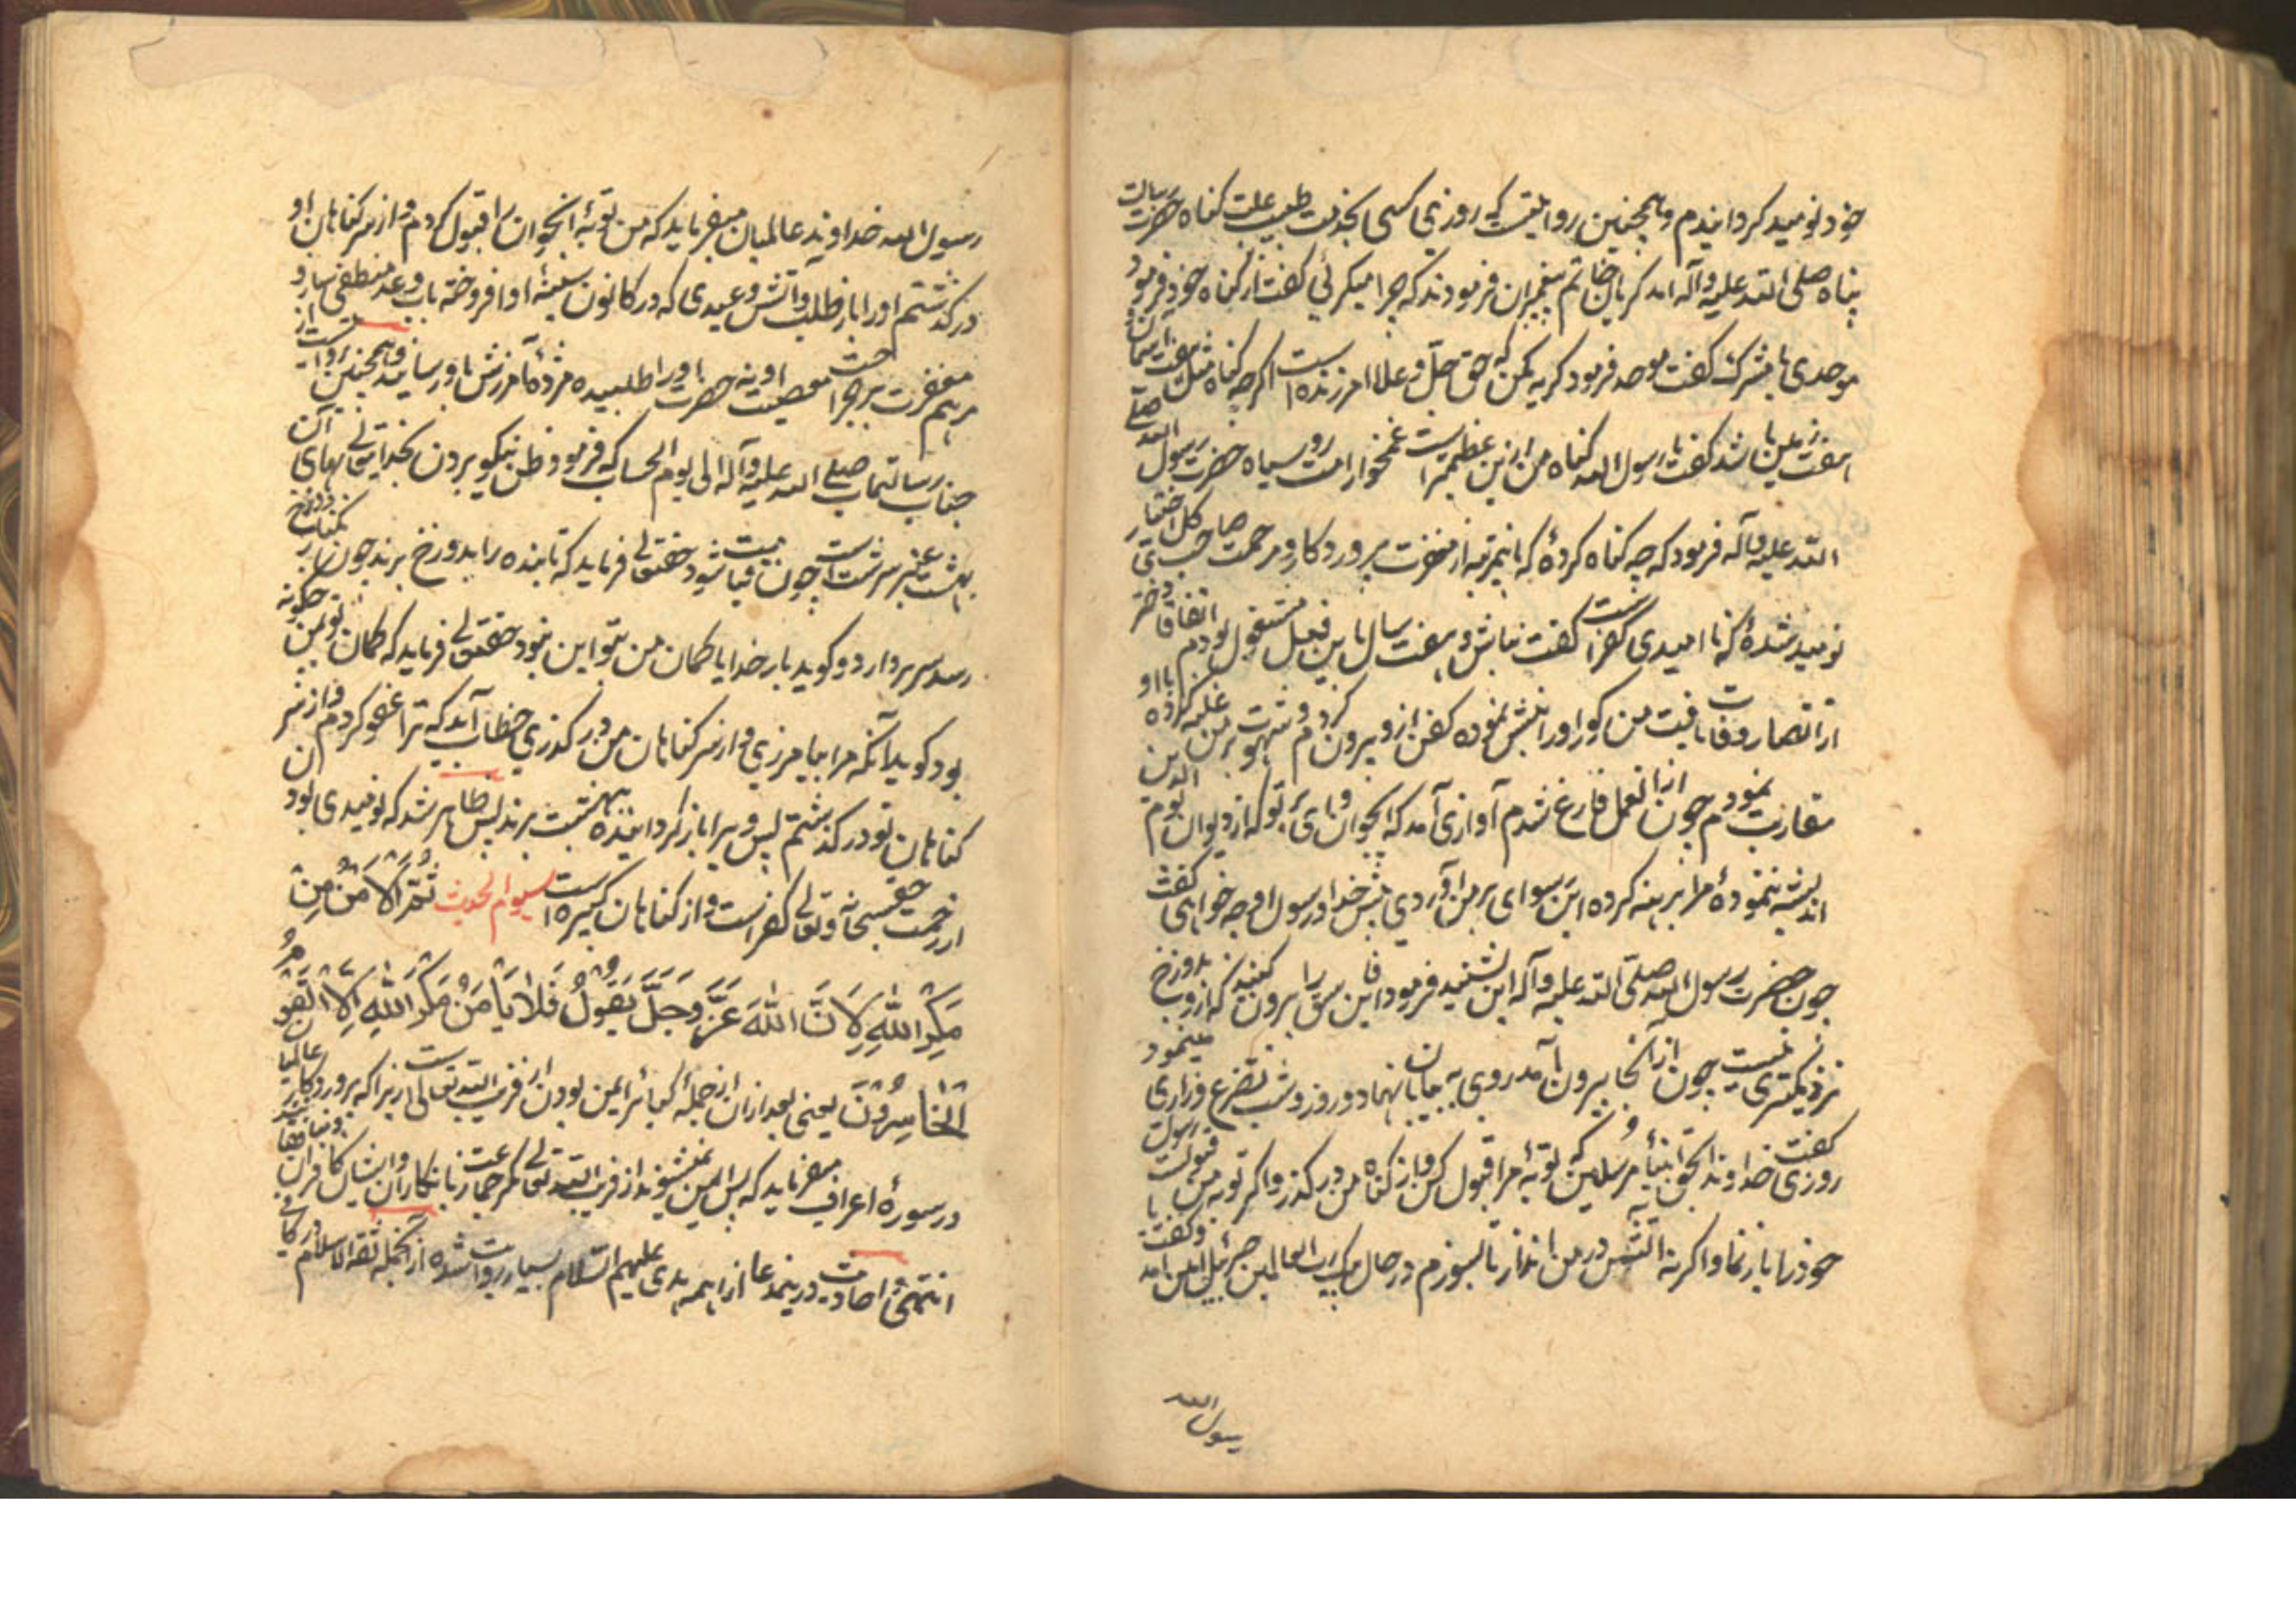 خود نومید کردانیدم و همچنین روایتست که روزی کسی بخدمت طبیب علت کناه حضرت رسالت
پناه صلی الله علیه وآله امد کریان خاتم پیغمبران فرمودند که چرا میکرئی کفت از کناه خود فرمود
موحدی یا مشرک کفت موحد فرمود کریه مکن که حق جل وعلا امرزنده است اکرچه کناه مثل هفت اسمان
هفت زمین باشد کفت یا رسول الله کناه من ازین عظیمتر است غمخوار امت رو سیاه حضرت رسول الله صلی
الله علیه وآله فرمود که چه کناه کردهٔ که باینمرتبه از مغفرت پروردکار ومرحمت صاحب کل اختیار
نومید شدهٔ که نا امیدی کفر است کفت نباش و هفت سال باین فعل مشغول بودم اتفاقا دختر
از انصار وفات یافت من کور او را نبش نموده کفن ازو بیرون کردم و شهوت بر من غلبه کرده با او
مقاربت نمودم چون از انعمل فارغ شدم آوازی آمد که ایجوان وای بر تو که از دیوان یوم الدین
اندیشه ننمودهٔ مرا برهنه کرده این رسوای بر من آوردی پیش خدا و رسول او چه خواهی کفت
چون حضرت رسول الله صلی الله علیه وآله این شنید فرمود این فاسق را بیرون کنید که ازو بدوزخ
نزدیکتری نیست چون از آنجا بیرون آمد روی به بیابان نهاد و روز و شب تضرع وزاری مینمود
روزی کفت خداوندا بحق انبیأ و مرسلین که توبهٔ مرا قبول کن و از کناه من در کذر و اکر توبه من قبولست رسولت
خود را با باز نما و اکر نه آتش در من انداز تا بسوزم در حال پیک رب العالمین جبرئیل امین امد وکفت یا
رسول الله
رسول الله خداوند عالمیان میفرماید که من توبهٔ انجوان را قبول کردم و از سر کناهان او
درکذشتم او را باز طلب و آتش وعیدی که در کانون سینهٔ او افروخته باب وعد منطفی ساز و
مرهم مغفرت بر جراحت معصیت او نه حضرت او را طلبیده مژدهٔ آمرزش باو رسانید وهمچنین روایت است از
جناب رسالتماب صلی الله علیه وآله الی یوم الحساب که فرمود ظن نیکو بردن بخدایتعالی بهای آن
بهشت عنبر سرشت است چون قیامت شود حقتعالی فرماید که تا بنده را بدوزخ برند چون بر کنار دوزخ
رسد سر بردارد و کوید بار خدایا کمان من بتو این نبود حقتعالی فرماید که کمان تو بمن چکونه
بود کوید آنکه مرا بیامرزی و از سر کناهان من در کذری خطاب آید که ترا عفو کردم و از سر
کناهان تو درکذشتم پس ویرا باز کردانیده به بهشت برند پس ظاهر شد که نومیدی بود ن
از رحمت حق سبحانه وتعالی کفر است و از کناهان کبیره است سیوم الحدیث ثُمَّ الاَمْنُ مِنْ
مَكْرِ اللّٰهِ لِاَنَّ اللّٰهَ عَزَّ وَجَلَّ يَقُولُ فَلَا يَأْمَنُ مَكْرَ اللّٰهِ اِلَّا الْقَوْمُ
الْخَاسِرُونَ یعنی بعد از ان از جملهٔ کبائر ایمن بودن از فریب الله تعالی است زیرا که پروردکار عالمیان
در سورهٔ اعراف میفرماید که پس ایمن نمیشوند از فریب الله تعالی مکر جماعت زیانکاران وایشان کافران
انتهی و احادیث درینمدعا از ایمه هدی علیهم السلام بسیار روایت شده از انجمله ثقة الاسلام در کافی